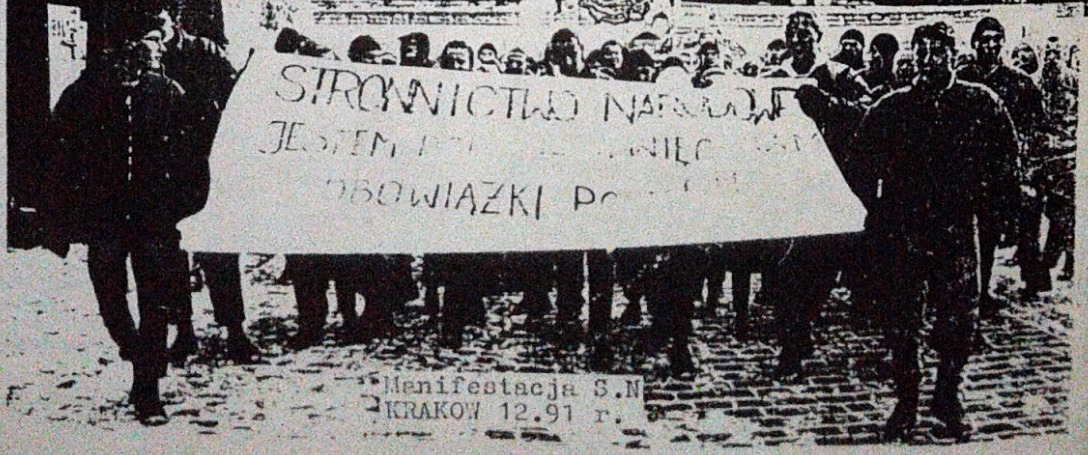 STRONNICTWO NARODOWE
JESTEM WIĘC MAM
OBOWIĄZKI
Manifestacja S.N
KRAKOW 12.91 r.